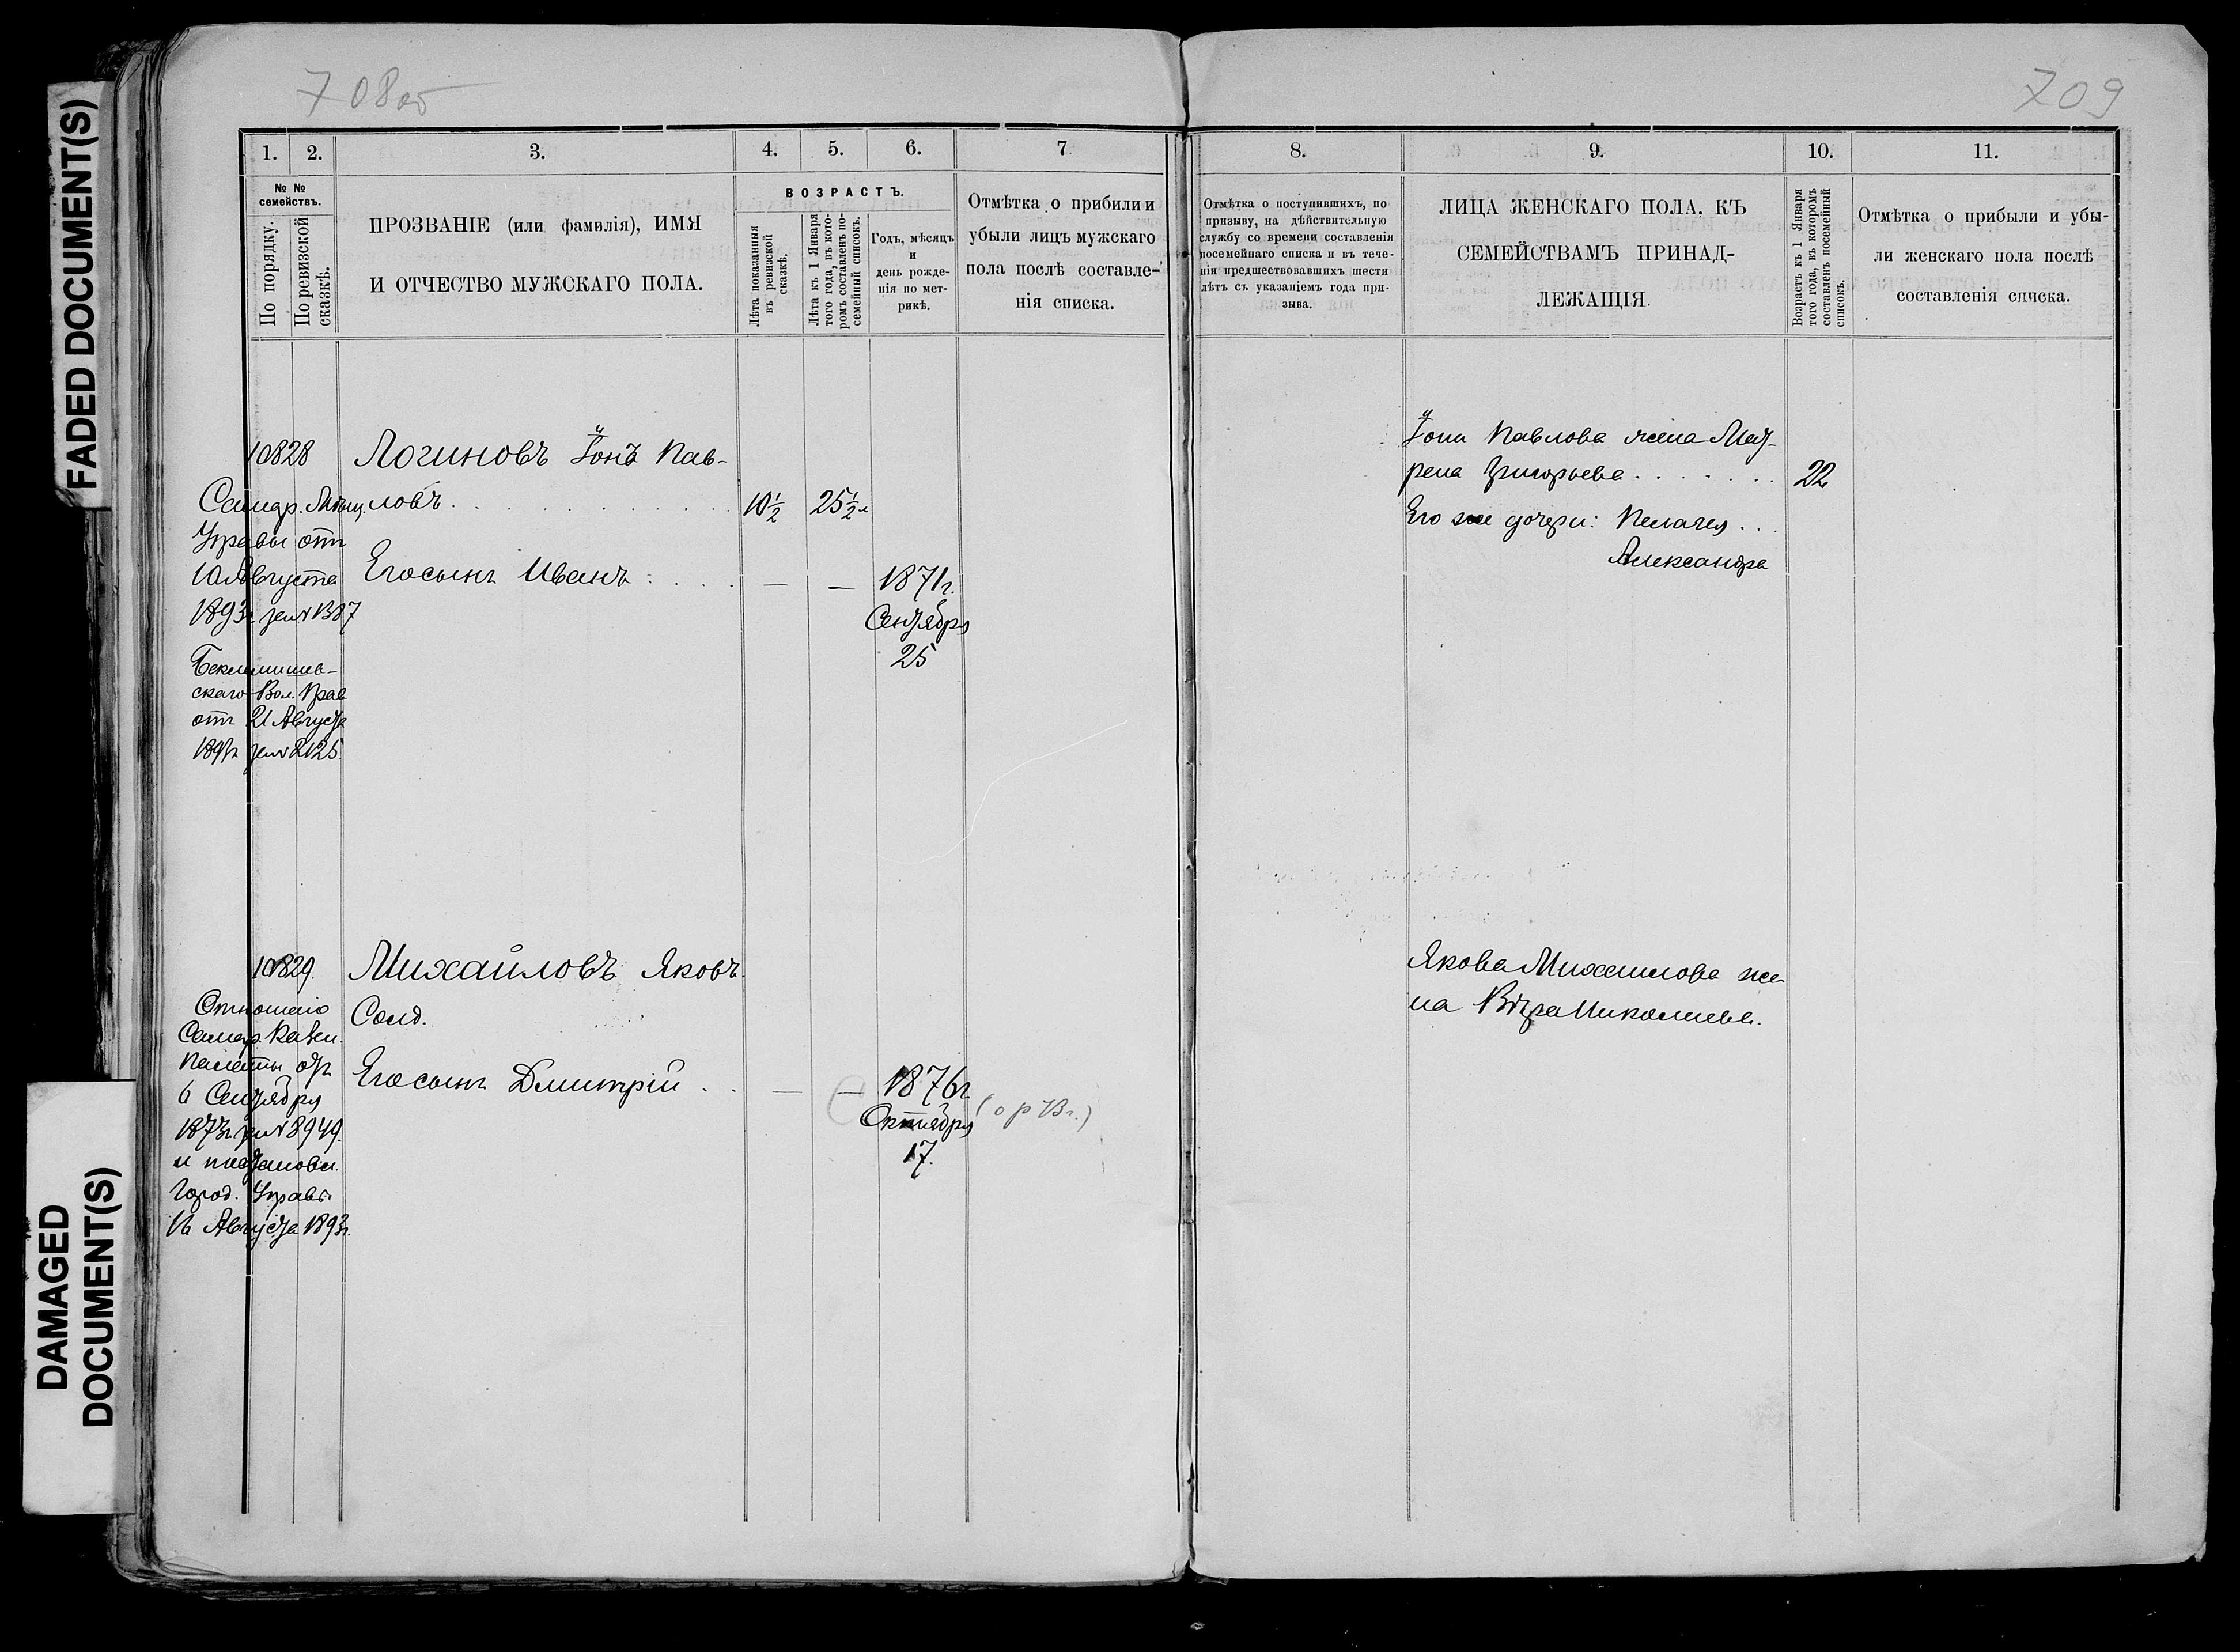 FADED DOCUMENT(S)
DAMAGED
DOCUMENT(S)
708об
1.
2.
3.
4.
5.
6.
7
№ №
семействъ.
По порядку.
По ревизской
сказкѣ.
ПРОЗВАНІЕ (или фамилія), ИМЯ
И ОТЧЕСТВО МУЖСКАГО ПОЛА.
ВОЗРАСТЪ.
Лѣта показанныя
въ ревизской
сказкѣ.
Лѣта къ 1 Января
того года, въ кото-
ромъ составленъ по-
семейный списокъ.
Годъ, мѣсяцъ
и
день рожде-
нія по мет-
рикѣ.
Отмѣтка о прибыли и
убыли лицъ мужскаго
пола послѣ составле-
нія списка.
10828
Логиновъ Іонъ Пав-
ловъ
10½
25½
Самар. Мѣщ.
Управы отъ
10 Августа
1893г за №1387
Беклемише-
скаго Вол. Прав
отъ 21 Августа
189 г за №2125.
Его сынъ Иванъ
—
—
1871г.
Сентября
25
10829.
Михайловъ Яковъ.
Солд.
Отношенію
Самар. Казен.
Палаты отъ
6 Сентября
1873г за №8949.
и постановл.
Город. Управы
16 Августа 1893г.
Его сынъ Дмитрій
—
—
1876г.
Октября
17.
709
8.
9.
10.
11.
Отмѣтка о поступившихъ, по
призыву, на дѣйствительную
службу со времени составленія
посемейнаго списка и въ тече-
ніи предшествовавшихъ шести
лѣтъ съ указаніемъ года при-
зыва.
ЛИЦА ЖЕНСКАГО ПОЛА, КЪ
СЕМЕЙСТВАМЪ ПРИНАД-
ЛЕЖАЩІЯ.
Возрастъ къ 1 Января
того года, въ которомъ
составленъ посемейный
списокъ.
Отмѣтка о прибыли и убы-
ли женскаго пола послѣ
составленія списка.
Іона Павлова жена Мат-
рена Григорьева
22
Его же дочери: Пелагея
Александра
Якова Михаилова же-
на Вѣра Николаева.